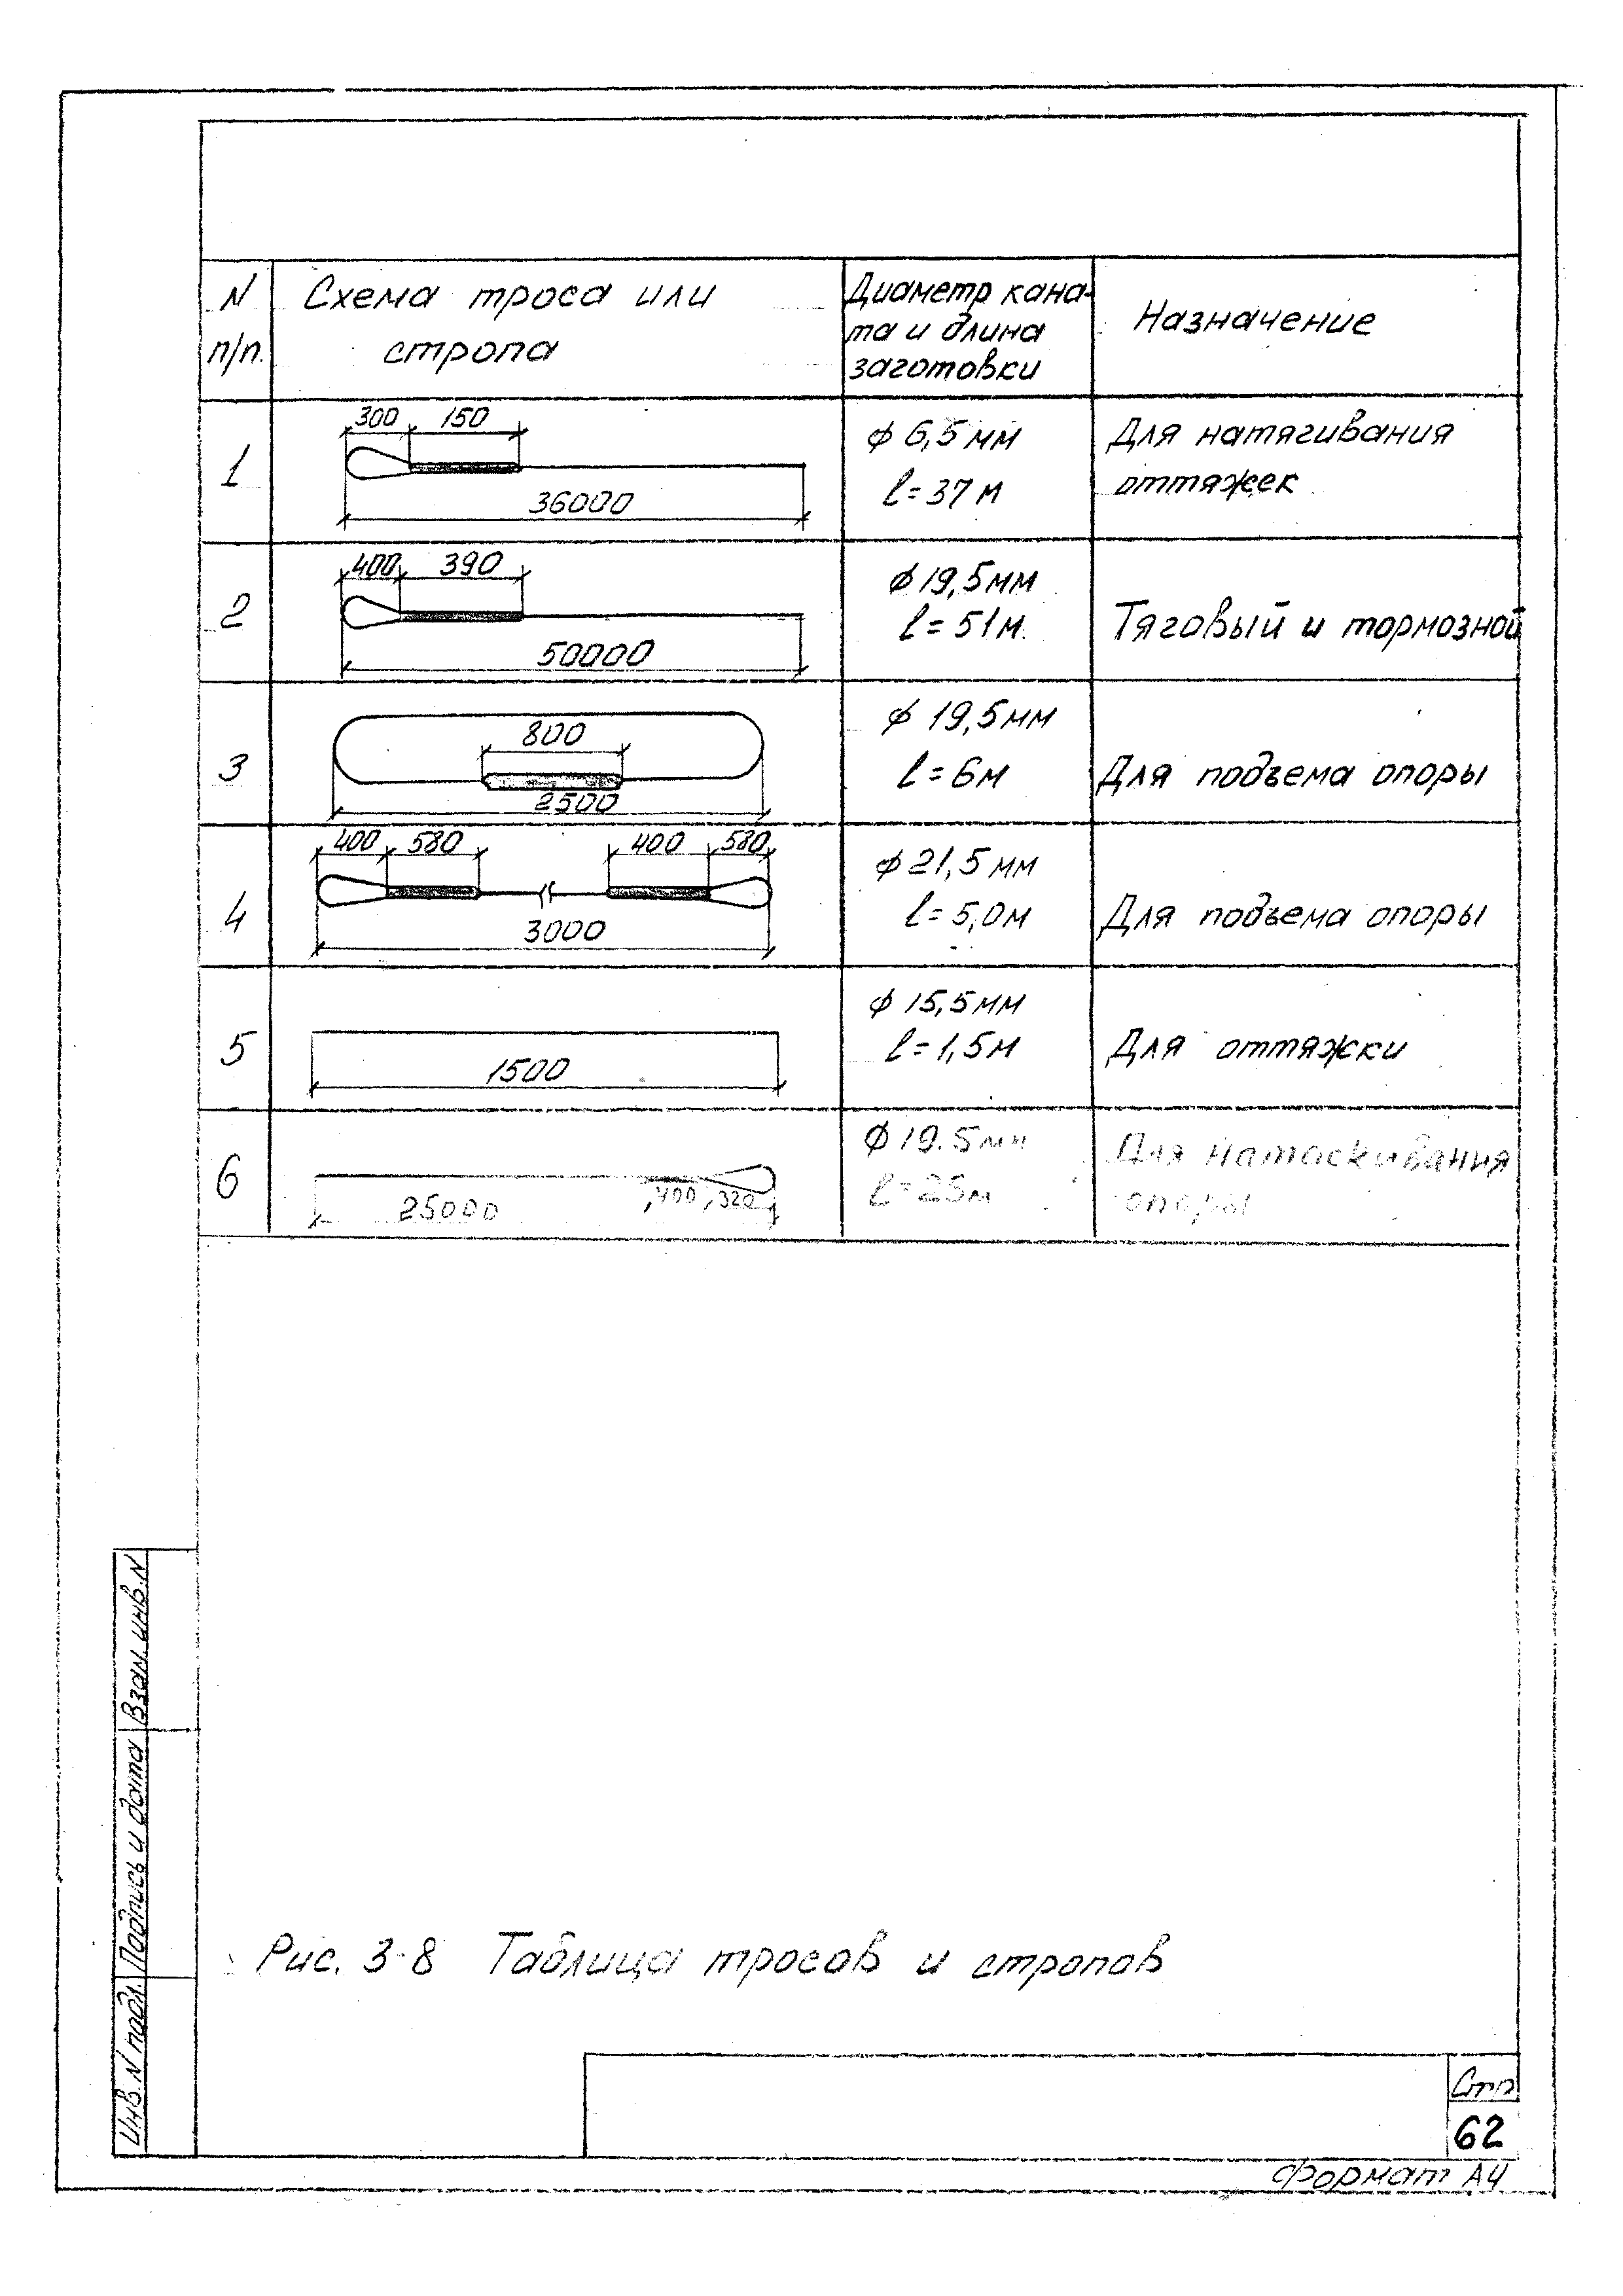 N
п/п.
Схема троса или
стропа
Диаметр кана-
та и длина
заготовки
Назначение
1
300 150
36000
ϕ 6,5 мм
l = 37 м
Для натягивания
оттяжек
2
400 390
50000
ϕ 19,5 мм
l = 51 м.
Тяговый и тормозной
3
800
2500
ϕ 19,5 мм
l = 6 м
Для подъема опоры
4
400 580 400 580
3000
ϕ 21,5 мм
l = 5,0 м
Для подъема опоры
5
1500
ϕ 15,5 мм
l = 1,5 м
Для оттяжки
6
400 320
25000
ϕ 19.5 мм
l = 25 м
Для натаскивания
опоры
Рис. 3-8 Таблица тросов и стропов
Взам. инв. N
Подпись и дата
Инв. N подл.
Стр
62
Формат А4